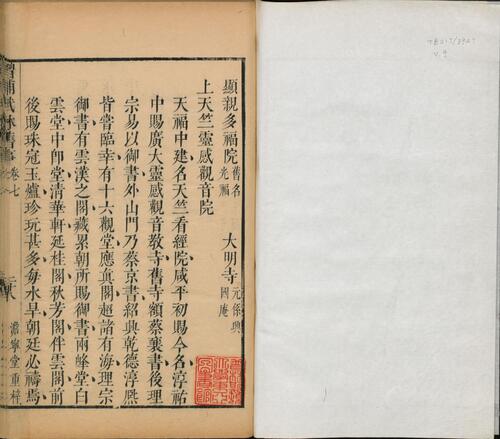 顯親多福院 舊名光福 大明寺 元係興國庵
上天竺靈感觀音院
天福中建名天竺看經院咸平初賜今名淳祐
中賜廣大靈感觀音教寺舊寺額蔡襄書後理
宗易以御書外山門乃蔡京書紹興乾德淳熙
皆嘗臨幸有十六觀堂應眞閣超諸有海理宗
御書有雲漢之閣藏累朝所賜御書兩峰堂白
雲堂中卽堂清華軒延桂閣秋芳閣伴雲閣前
後賜珠冠玉爐珍玩甚多每水旱朝廷必禱焉
增補武林舊事 卷七
二八
澹寧堂重梓